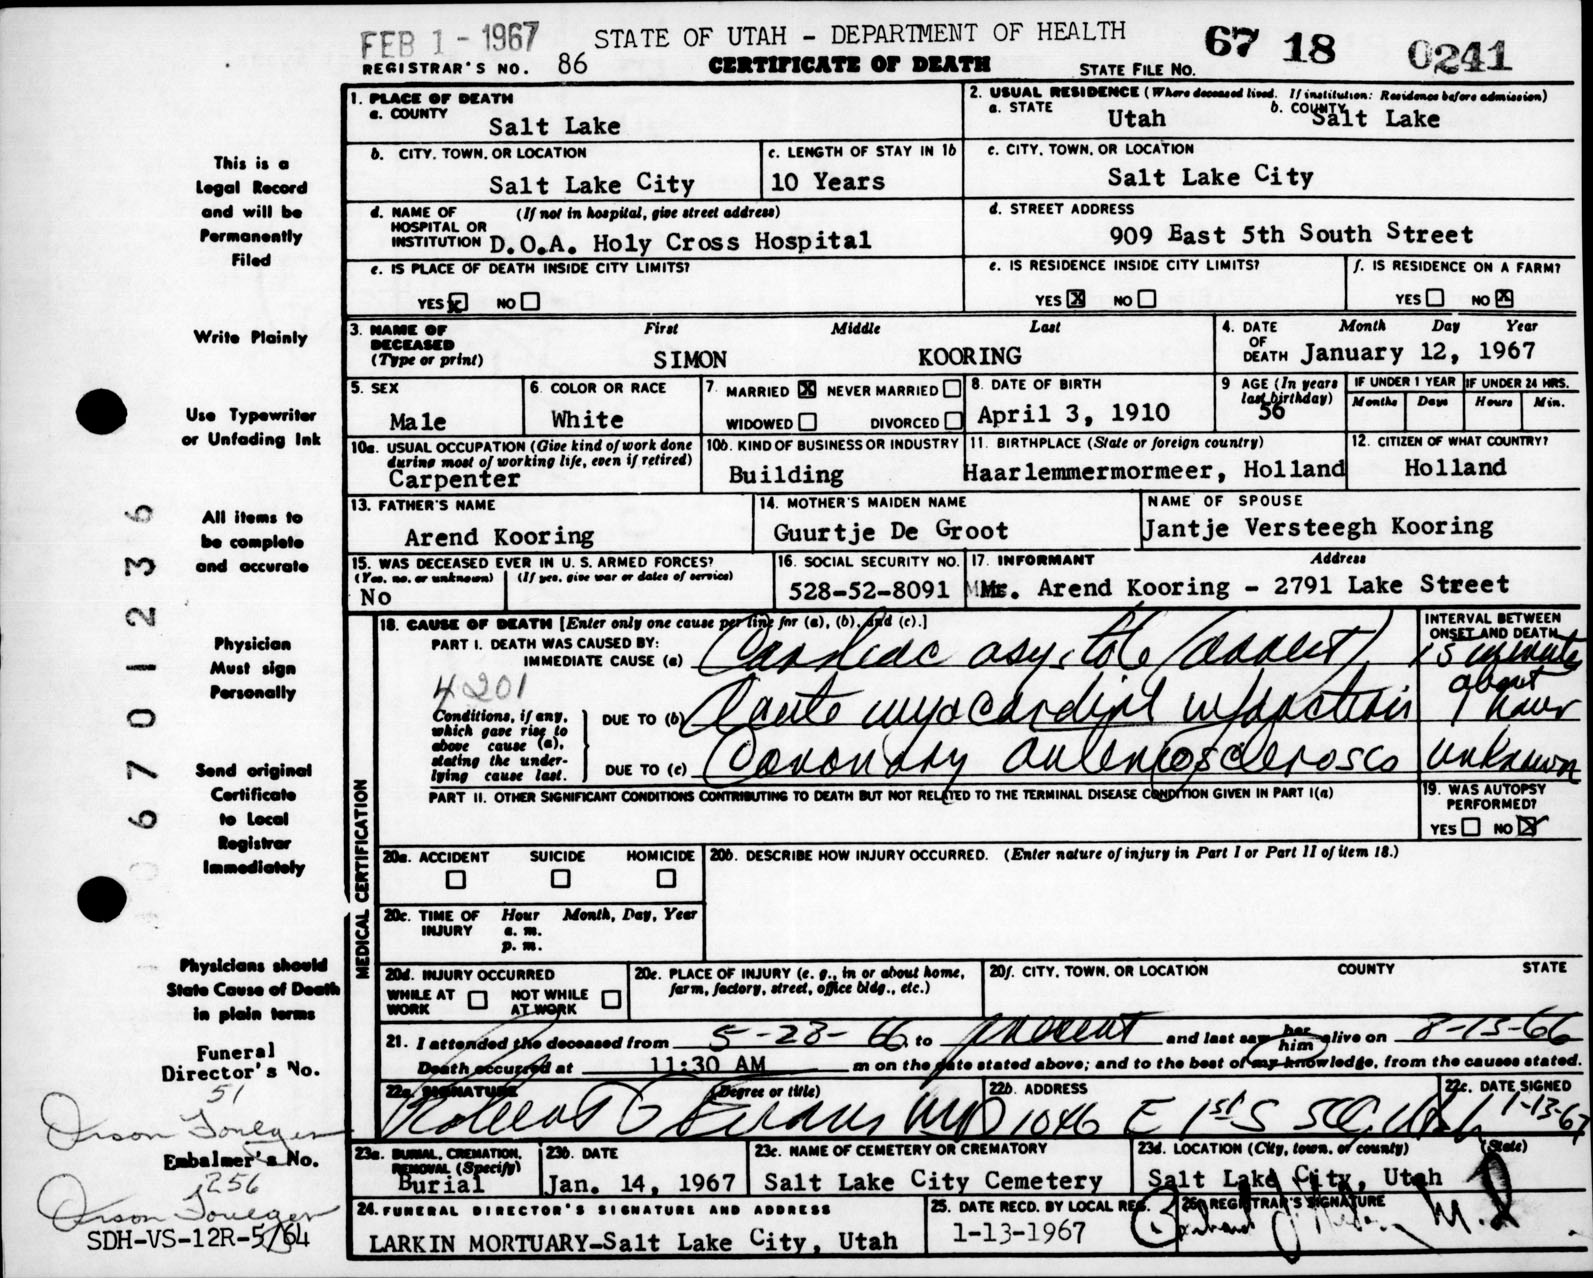 FEB 1 - 1967 STATE OF UTAH - DEPARTMENT OF HEALTH 67 18 0241
REGISTRAR'S NO. 86 CERTIFICATE OF DEATH STATE FILE NO.
1. PLACE OF DEATH
a. COUNTY
Salt Lake
2. USUAL RESIDENCE (Where deceased lived. If institution: Residence before admission)
a. STATE Utah b. COUNTY Salt Lake
b. CITY, TOWN, OR LOCATION
Salt Lake City
c. LENGTH OF STAY IN 1b
10 Years
c. CITY, TOWN, OR LOCATION
Salt Lake City
d. NAME OF HOSPITAL OR INSTITUTION (If not in hospital, give street address)
D.O.A. Holy Cross Hospital
d. STREET ADDRESS
909 East 5th South Street
e. IS PLACE OF DEATH INSIDE CITY LIMITS?
YES X NO
e. IS RESIDENCE INSIDE CITY LIMITS?
YES X NO
f. IS RESIDENCE ON A FARM?
YES NO X
3. NAME OF DECEASED (Type or print) First Middle Last
SIMON KOORING
4. DATE OF DEATH Month Day Year
January 12, 1967
5. SEX
Male
6. COLOR OR RACE
White
7. MARRIED X NEVER MARRIED
WIDOWED DIVORCED
8. DATE OF BIRTH
April 3, 1910
9 AGE (In years last birthday)
56
IF UNDER 1 YEAR
Months Days
IF UNDER 24 HRS.
Hours Min.
10a. USUAL OCCUPATION (Give kind of work done during most of working life, even if retired)
Carpenter
10b. KIND OF BUSINESS OR INDUSTRY
Building
11. BIRTHPLACE (State or foreign country)
Haarlemmermormeer, Holland
12. CITIZEN OF WHAT COUNTRY?
Holland
13. FATHER'S NAME
Arend Kooring
14. MOTHER'S MAIDEN NAME
Guurtje De Groot
NAME OF SPOUSE
Jantje Versteegh Kooring
15. WAS DECEASED EVER IN U. S. ARMED FORCES?
(Yes, no, or unknown) (If yes, give war or dates of service)
No
16. SOCIAL SECURITY NO.
528-52-8091
17. INFORMANT Address
Mr. Arend Kooring - 2791 Lake Street
MEDICAL CERTIFICATION
18. CAUSE OF DEATH [Enter only one cause per line for (a), (b), and (c).]
PART I. DEATH WAS CAUSED BY:
IMMEDIATE CAUSE (a) Cardiac asystole (arrest)
4201
Conditions, if any, which gave rise to above cause (a), stating the underlying cause last.
DUE TO (b) Acute myocardial infarction
DUE TO (c) Coronary arteriosclerosis
INTERVAL BETWEEN ONSET AND DEATH
15 minutes
about 1 hour
unknown
PART II. OTHER SIGNIFICANT CONDITIONS CONTRIBUTING TO DEATH BUT NOT RELATED TO THE TERMINAL DISEASE CONDITION GIVEN IN PART I(a)
19. WAS AUTOPSY PERFORMED?
YES NO X
20a. ACCIDENT SUICIDE HOMICIDE
20b. DESCRIBE HOW INJURY OCCURRED. (Enter nature of injury in Part I or Part II of item 18.)
20c. TIME OF INJURY Hour Month, Day, Year
a. m.
p. m.
20d. INJURY OCCURRED
WHILE AT WORK NOT WHILE AT WORK
20e. PLACE OF INJURY (e. g., in or about home, farm, factory, street, office bldg., etc.)
20f. CITY, TOWN, OR LOCATION COUNTY STATE
21. I attended the deceased from 5-23-66, to present and last saw her him alive on 8-15-66
Death occurred at 11:30 AM m on the date stated above; and to the best of my knowledge, from the causes stated.
22a. SIGNATURE (Degree or title)
Robert Evans MD
22b. ADDRESS
1046 E 1st S SLC Utah
22c. DATE SIGNED
1-13-67
23a. BURIAL, CREMATION, REMOVAL (Specify)
Burial
23b. DATE
Jan. 14, 1967
23c. NAME OF CEMETERY OR CREMATORY
Salt Lake City Cemetery
23d. LOCATION (City, town, or county) (State)
Salt Lake City, Utah
24. FUNERAL DIRECTOR'S SIGNATURE AND ADDRESS
LARKIN MORTUARY-Salt Lake City, Utah
25. DATE RECD. BY LOCAL REG.
1-13-1967
26. REGISTRAR'S SIGNATURE
M.D.
This is a
Legal Record
and will be
Permanently
Filed
Write Plainly
Use Typewriter
or Unfading Ink
All items to
be complete
and accurate
Physician
Must sign
Personally
Send original
Certificate
to Local
Registrar
Immediately
Physicians should
State Cause of Death
in plain terms
Funeral
Director's No.
51
Orson Foulger
Embalmer's No.
256
Orson Foulger
SDH-VS-12R-5/64
6701236